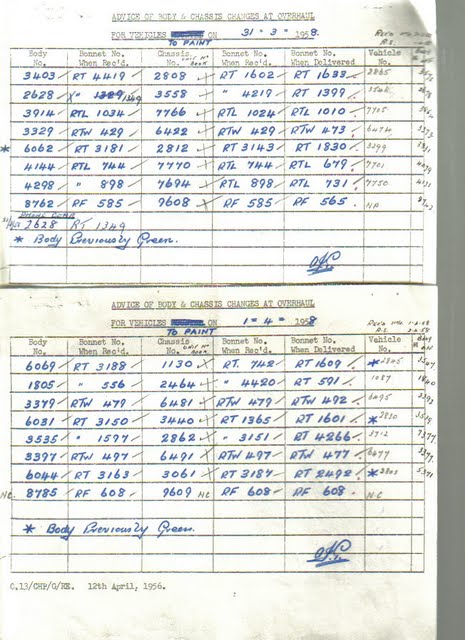 ADVICE OF BODY & CHASSIS CHANGES AT OVERHAUL
FOR VEHICLES ON 31 - 3 - 1958.
TO PAINT
Body No. Bonnet No. When Rec'd. Chassis No. Unit No Book Bonnet No. When Rec'd. Bonnet No. When Delivered Vehicle No.
3403 RT 4419 2808 RT 1602 RT 1633 2865
2628 " 1349 3558 " 4219 RT 1399
3914 RTL 1034 7766 RTL 1024 RTL 1010 7705
3329 RTW 429 6422 RTW 429 RTW 473 6474
* 6062 RT 3181 2812 RT 3143 RT 1830 3299
4144 RTL 744 7770 RTL 744 RTL 679 7701
4298 " 898 7694 RTL 898 RTL 731 7750
8762 RF 585 9608 RF 585 RF 565 NA
2628 RT 1349
* Body Previously Green.
ADVICE OF BODY & CHASSIS CHANGES AT OVERHAUL
FOR VEHICLES ON 1 - 4 - 1958
TO PAINT
Body No. Bonnet No. When Rec'd. Chassis No. Unit No Book Bonnet No. When Rec'd. Bonnet No. When Delivered Vehicle No.
6069 RT 3188 1130 RT. 742 RT 1609 * 2845
1805 " 556 2464 " 4420 RT 591 1087
3379 RTW 479 6481 RTW 479 RTW 492 6495 3393
6031 RT 3150 3440 RT 1365 RT 1601 * 2830
3535 " 1597 2862 " 3151 RT 4266
3397 RTW 497 6491 RTW 497 RTW 477 6477
6044 RT 3163 3061 RT 3187 RT 2492 * 2803
N.C. 8785 RF 608 9609 N.C RF 608 RF 608 N.C
* Body Previously Green.
C.13/CHP/G/KE. 12th April, 1956.